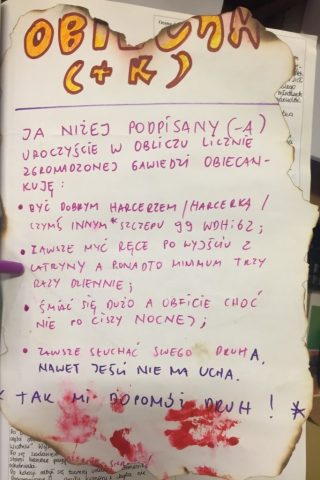 OBIECANKA
(+K)
JA NIŻEJ PODPISANY (-A)
UROCZYŚCIE W OBLICZU LICZNIE
ZGROMADZONEJ GAWIEDZI OBIECAN-
KUJĘ:
• BYĆ DOBRYM HARCERZEM / HARCERKĄ /
CZYMŚ INNYM* SZCZEPU 99 WDH:62;
• ZAWSZE MYĆ RĘCE PO WYJŚCIU Z
LATRYNY A PONADTO MINIMUM TRZY
RAZY DZIENNIE;
• ŚMIAĆ SIĘ DUŻO A OBFICIE CHOĆ
NIE PO CISZY NOCNEJ;
• ZAWSZE SŁUCHAĆ SWEGO DRUHA,
NAWET JEŚLI NIE MA UCHA.
* TAK MI DOPOMÓJ DRUH! *